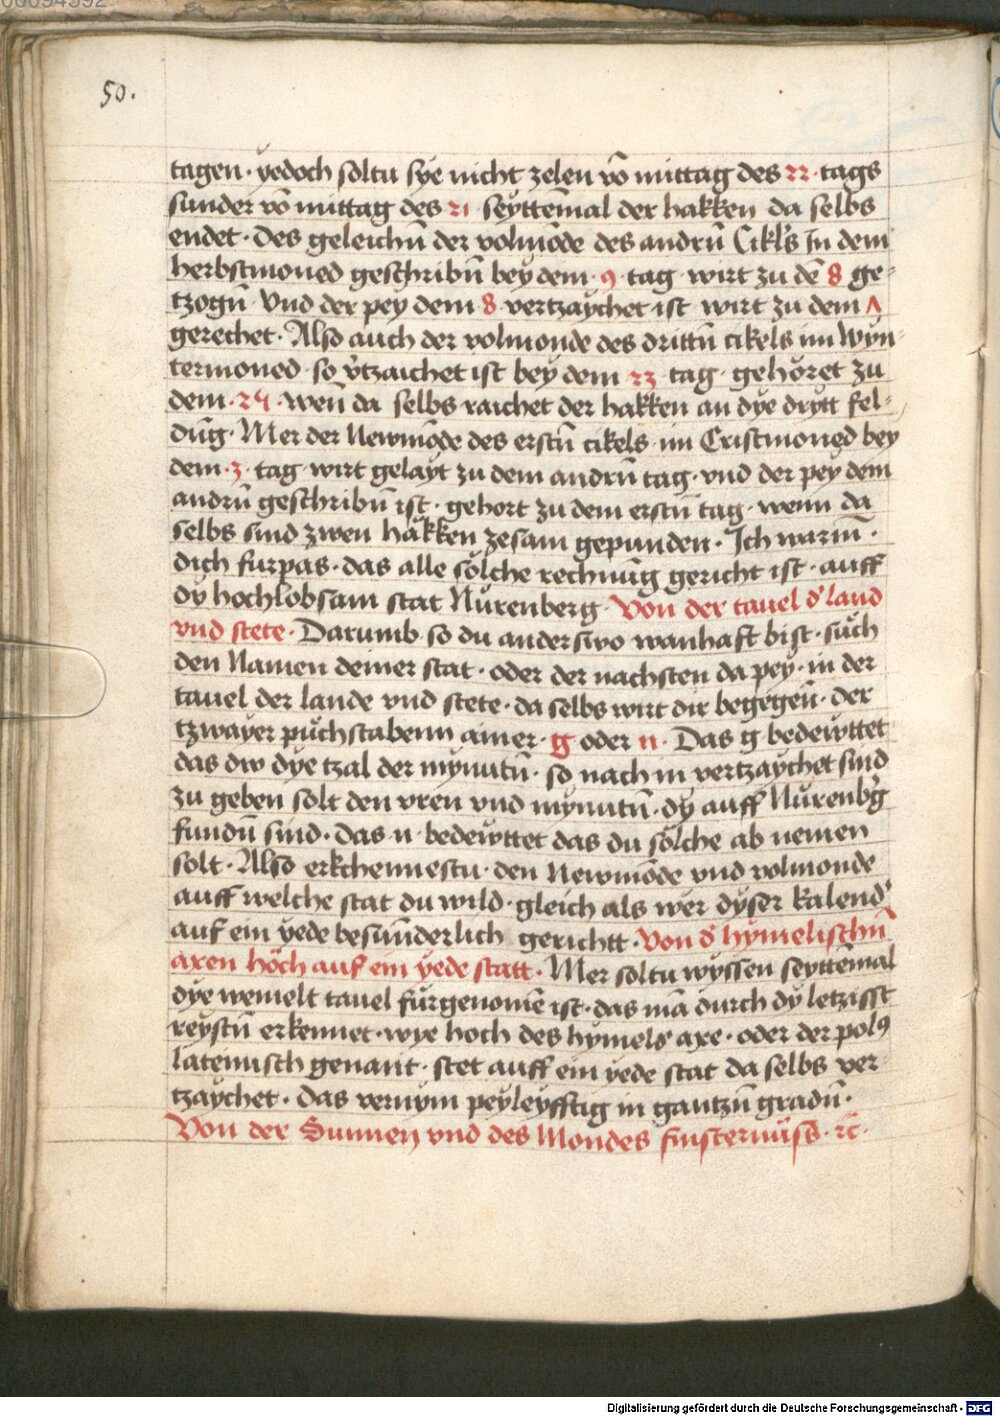 50.
tagen · yedoch soltu sye nicht zelen võ mittag des 22 · tags
sunder võ mittag des 21 · seyttemal der hakken da selbs
endet · Des geleichñ der volmõde des andrñ Cikl's In dem
herbstmoned geschribñ bey dem · 9 · tag · wirt zu dẽ 8 ge-
tzogñ Vnd der pey dem 8 · vertzaychet ist · wirt zu dem 7
gerechet · Also auch der volmonde des drittñ cikels im Wyn-
termoned · so v'tzaichet ist bey dem 23 · tag · gehoret zu
dem · 24 · weñ da selbs raichet der hakken an dye drytt fel-
dũg · Mer der Newmõde des erstñ cikels · im Cristmoned bey
dem · 3 · tag · wirt gelayt zu dem andrñ tag · vnd der pey dem
andrñ geschribñ ist · gehort zu dem erstñ tag · wenn da
selbs sind zwen hakken zesam gepunden · Ich warnn̄ ·
dich furpas · das alle solche rechnũg gericht ist · auff
dy hochlobsam stat Nurenberg · Von der tauel d' land
vnd stete · Darumb so du anderswo wanhaft bist · such
den Namen deiner stat · oder der nachsten da pey · in der
tauel der lande vnd stete · da selbs wirt dir begegeñ · der
tzwayer puchstabenn ainer · g oder n · Das g bedewttet
das dw dye tzal der mynutñ · so nach in vertzaychet sind
zu geben solt den vren vnd mynutñ · dy auff Nurenb'g
fundñ sind · das n · bedewttet das du solche ab nemen
solt · Also erkchennestu · den Newmõde vnd volmonde
auff welche stat du wild · gleich als wer dyser kalend'
auf ein yede besũnderlich gerichtt · Von d' hymelischñ
axen hoch auf ein yede statt · Mer soltu wyssen seyttemal
dye wemelt tauel furgenomẽ ist · das mã durch dy letzisst
reystñ erkennet · wye hoch des hymels axe · oder der pol9
lateinisch genant · stet auff ein yede stat da selbs ver-
tzaychet · das vernym peyleyfftig in gantzñ gradñ ·
Von der Sunnen vnd des Mondes finsternüss · rc ·
Digitalisierung gefördert durch die Deutsche Forschungsgemeinschaft - DFG